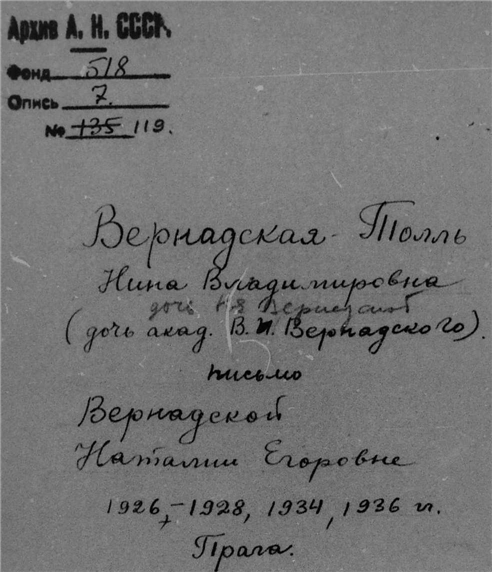 Архив А. Н. СССР.
Фонд 518
Опись 7.
№ 135 119.
Вернадская-Толль
Нина Владимировна
дочь
(дочь акад. В.И. Вернадского).
письмо
Вернадской
Наталии Егоровне
1926 - 1928, 1934, 1936 гг.
Прага.